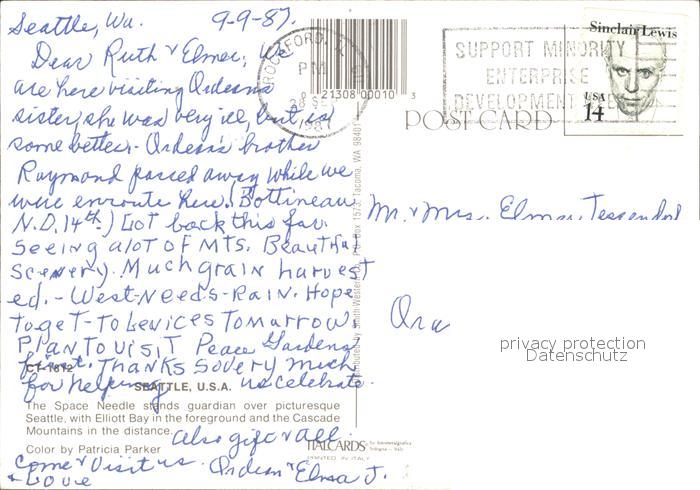 Seattle, Wa. 9-9-87.
Dear Ruth & Elmer, We
are here visiting Ordean's
sister, she was very ill, but is
some better. - Ordean's brother
Raymond passed away while we
were enroute here. (Bottineau
N.D. 14th.) Got back this far
seeing alot of Mts. Beautiful
Scenery. Much grain harvest
ed. - West-Needs-Rain. Hope
to get - to Levices Tomarrow.
Plan to visit Peace Gardens
first. Thanks so very much
for helping us celebrate.
Also gift & all.
Come & visit us. Ordean & Elma J.
& Love
CT-1612
SEATTLE, U.S.A.
The Space Needle stands guardian over picturesque
Seattle, with Elliott Bay in the foreground and the Cascade
Mountains in the distance.
Color by Patricia Parker
ITALCARDS
Bologna - Italy
PRINTED IN ITALY
Distributed by Smith-Western Co. P.O. Box 1573, Tacoma, WA 98401
0 21308 00010 3
ROCKFORD, IL
PM
28 SEP
1987
SUPPORT MINORITY
ENTERPRISE
DEVELOPMENT WEEK
Sinclair Lewis
USA
14
POST CARD
Mr. & Mrs. Elmer Tessendorf
Ora
privacy protection
Datenschutz